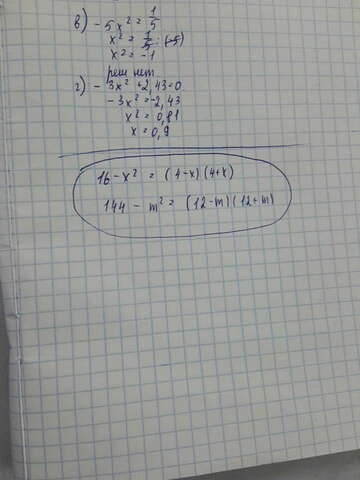 в) -5x² = 1/5
x² = 1/5 : (-5)
x² = -1
реш нет
г) -3x² +2,43=0
-3x² = -2,43
x² = 0,81
x = 0,9
16-x² = (4-x)(4+x)
144 - m² = (12-m)(12+m)